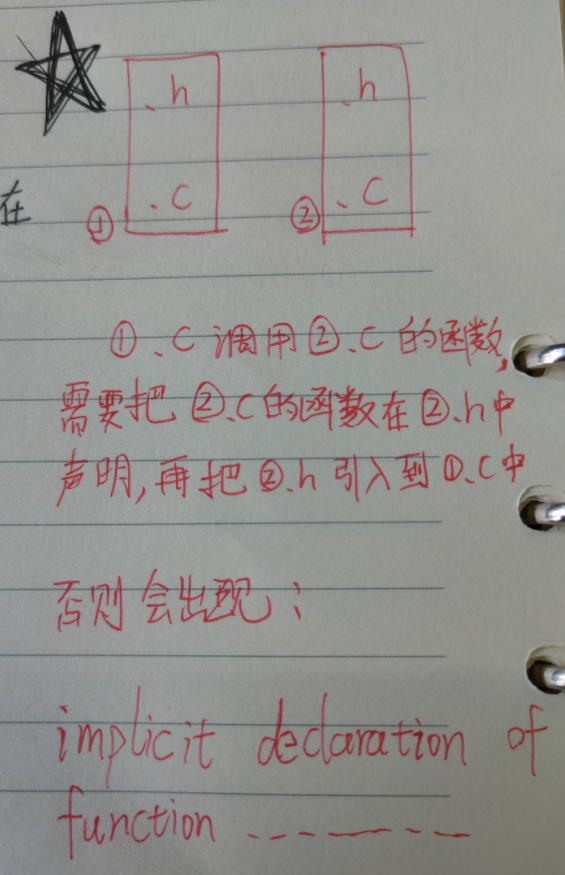 .h
.h
在
① .c
② .c
①.c 调用②.c 的函数,
需要把 ②.c的函数在②.h中
声明,再把②.h引入到①.c中
否则会出现:
implicit declaration of
function --------